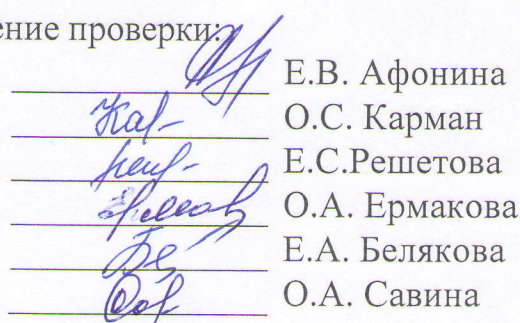 ение проверки:
Е.В. Афонина
О.С. Карман
Е.С.Решетова
О.А. Ермакова
Е.А. Белякова
О.А. Савина